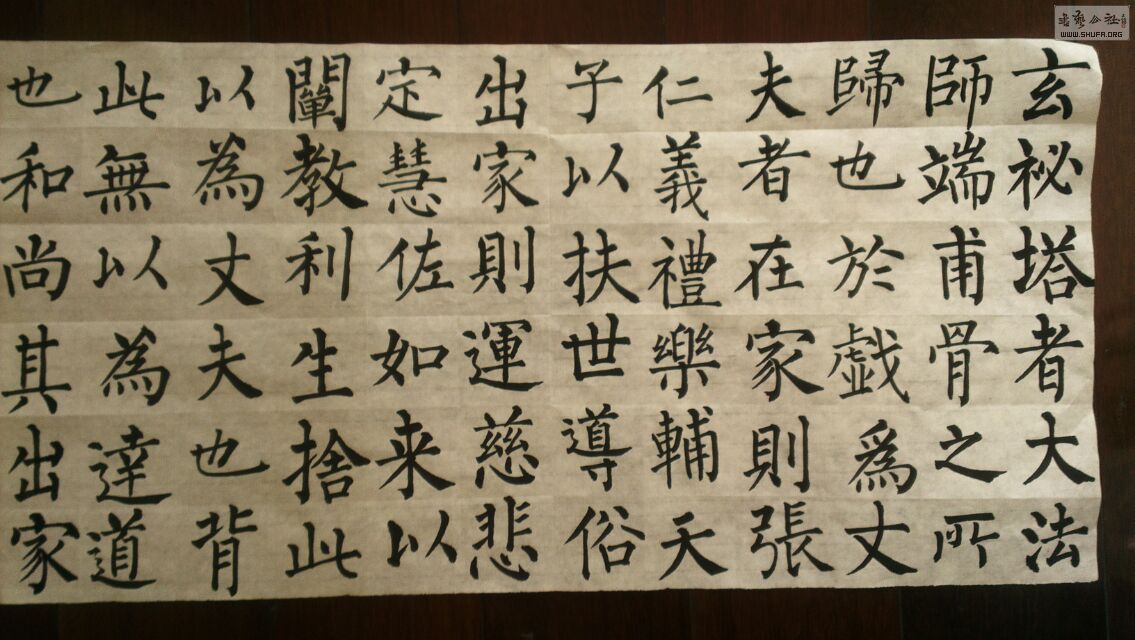 玄祕塔者大法
師端甫骨之所
歸也於戲為丈
夫者在家則張
仁義禮樂輔天
子以扶世導俗
出家則運慈悲
定慧佐如来以
闡教利生捨此
以為丈夫也背
此無以為達道
也和尚其出家
WWW.SHUFA.ORG